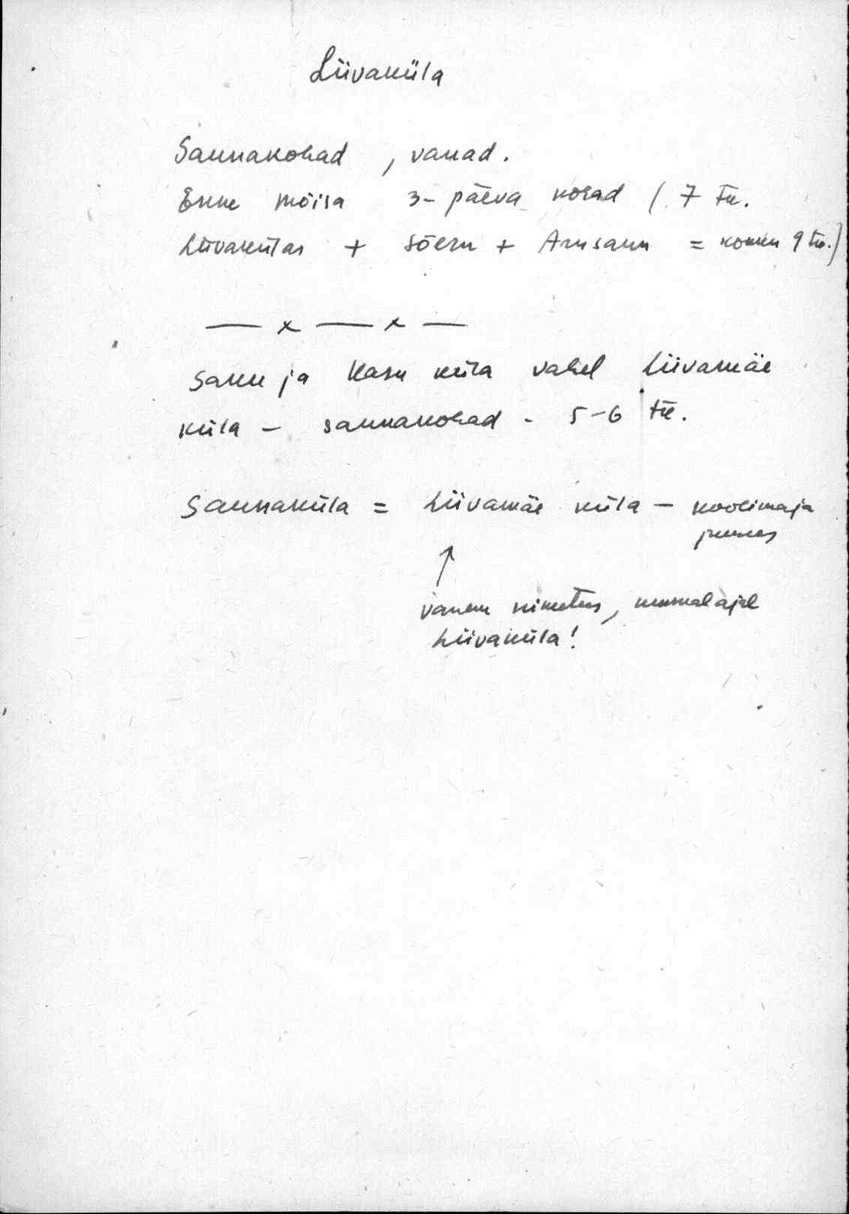 Liivaküla
Saunakohad , vanad.
Enne mõisa 3-päeva kohad ( 7 tk.
Liivakülas + Sõeru + Arusaun = kokku 9 tk.)
— x — x —
Saru ja Kasu küla vahel Liivamäe
küla – saunakohad - 5-6 tk.
Saunaküla = Liivamäe küla – koolimaja
juures
↑
vanem nimetus, uuemal ajal
Liivaküla!